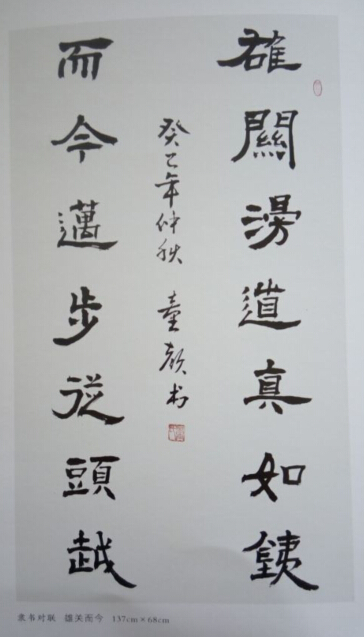 雄關漫道真如鐵
癸巳年仲秋 童 书
而今邁步從頭越
隶书对联 雄关而今 137cm×68cm